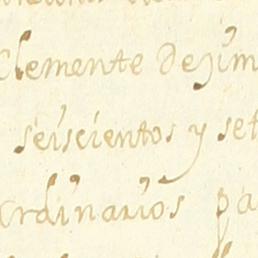 Clemente Dezim
seiscientos y set
ordinarios pa